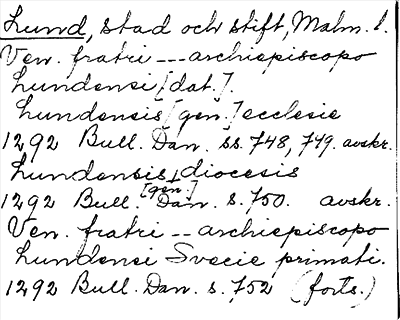 Lund, stad och stift, Malm. l.
Ven. fratri -- archiepiscopo
Lundensi [dat.].
Lundensis [gen.] ecclesie
1292 Bull. Dan. ss. 748, 749. avskr.
Lundensis diocesis
[gen.]
1292 Bull. Dan. s. 750. avskr.
Ven. fratri -- archiepiscopo
Lundensi Svecie primati.
1292 Bull. Dan. s. 752 (forts.)